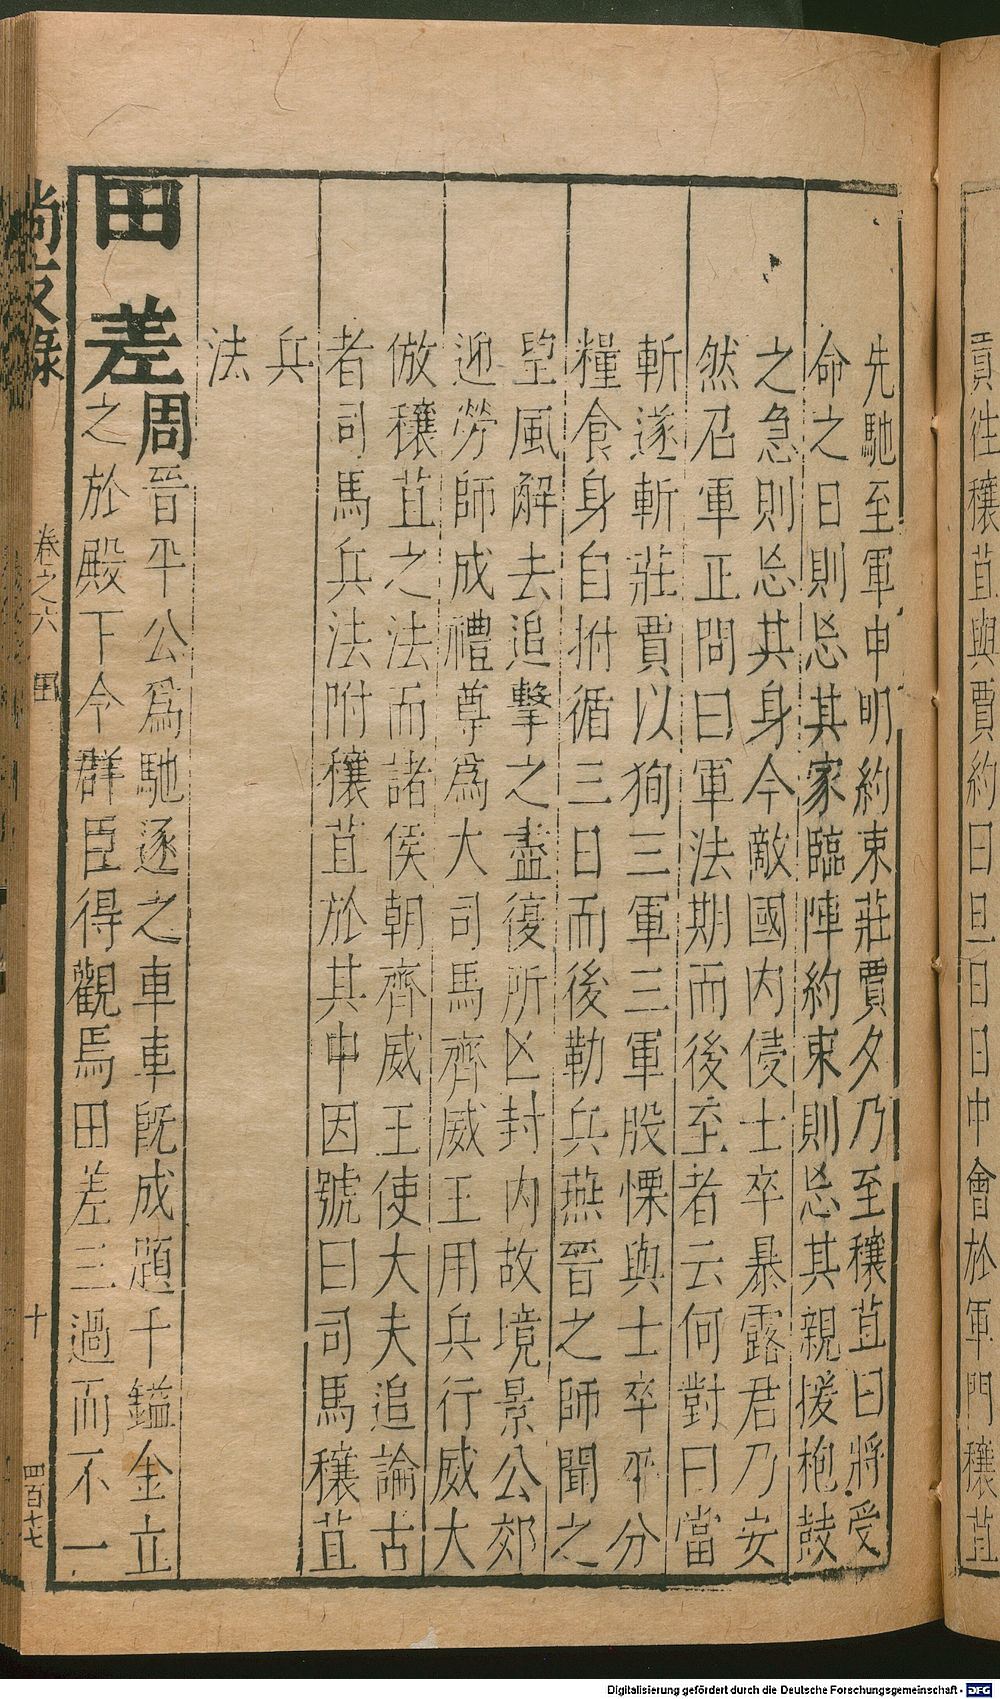 貢往穰苴與賈約曰旦日日中會於軍門穰苴
先馳至軍申明約束莊賈夕乃至穰苴曰將受
命之日則忘其家臨陣約束則忘其親援枹鼓
之急則忘其身今敵國内侵士卒暴露君乃安
然召軍正問曰軍法期而後至者云何對曰當
斬遂斬莊賈以狥三軍三軍股慄與士卒平分
糧食身自拊循三日而後勒兵燕晉之師聞之
望風解去追擊之盡復所亡封内故境景公郊
迎勞師成禮尊爲大司馬齊威王用兵行威大
倣穰苴之法而諸侯朝齊威王使大夫追論古
者司馬兵法附穰苴於其中因號曰司馬穰苴
兵
法
田差周晉平公爲馳逐之車車既成題千鎰金立
之於殿下令群臣得觀焉田差三過而不一
尚友錄 卷之六 田 十 四百七七
Digitalisierung gefördert durch die Deutsche Forschungsgemeinschaft - DFG